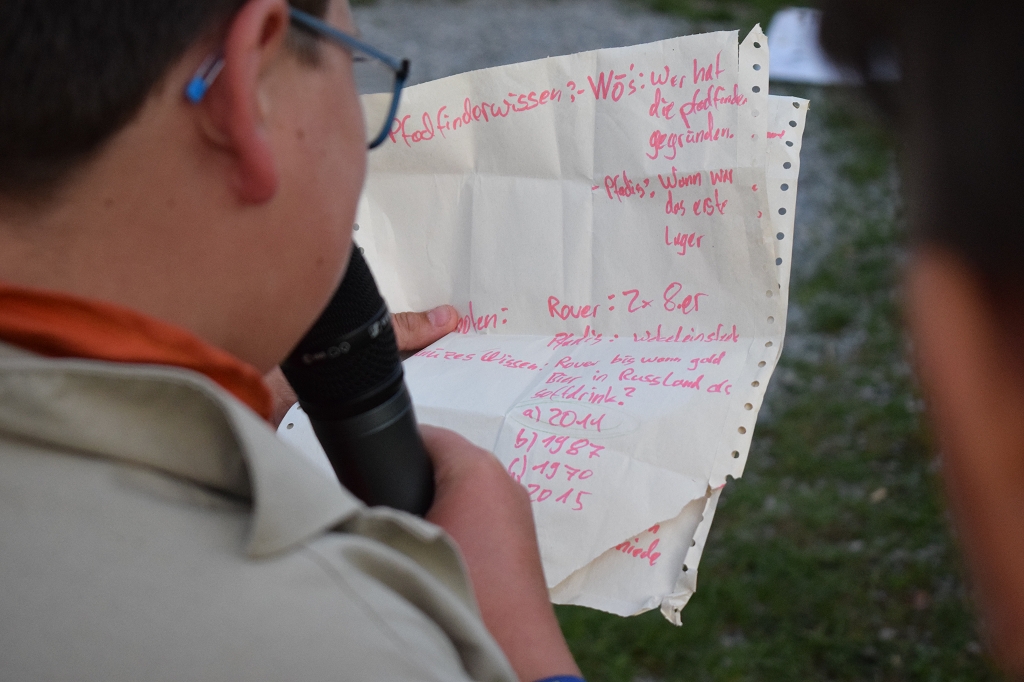 Pfadfinderwissen:- Wö's: Wer hat
die pfadfinder
gegründen.
- Pfadis: Wann war
das erste
Lager
Rover: 2x 8.er
Pfadis:
Wissen: Rover bis wann gald
Bier in Russland als
softdrink?
a) 2014
b) 1987
c) 1970
2015